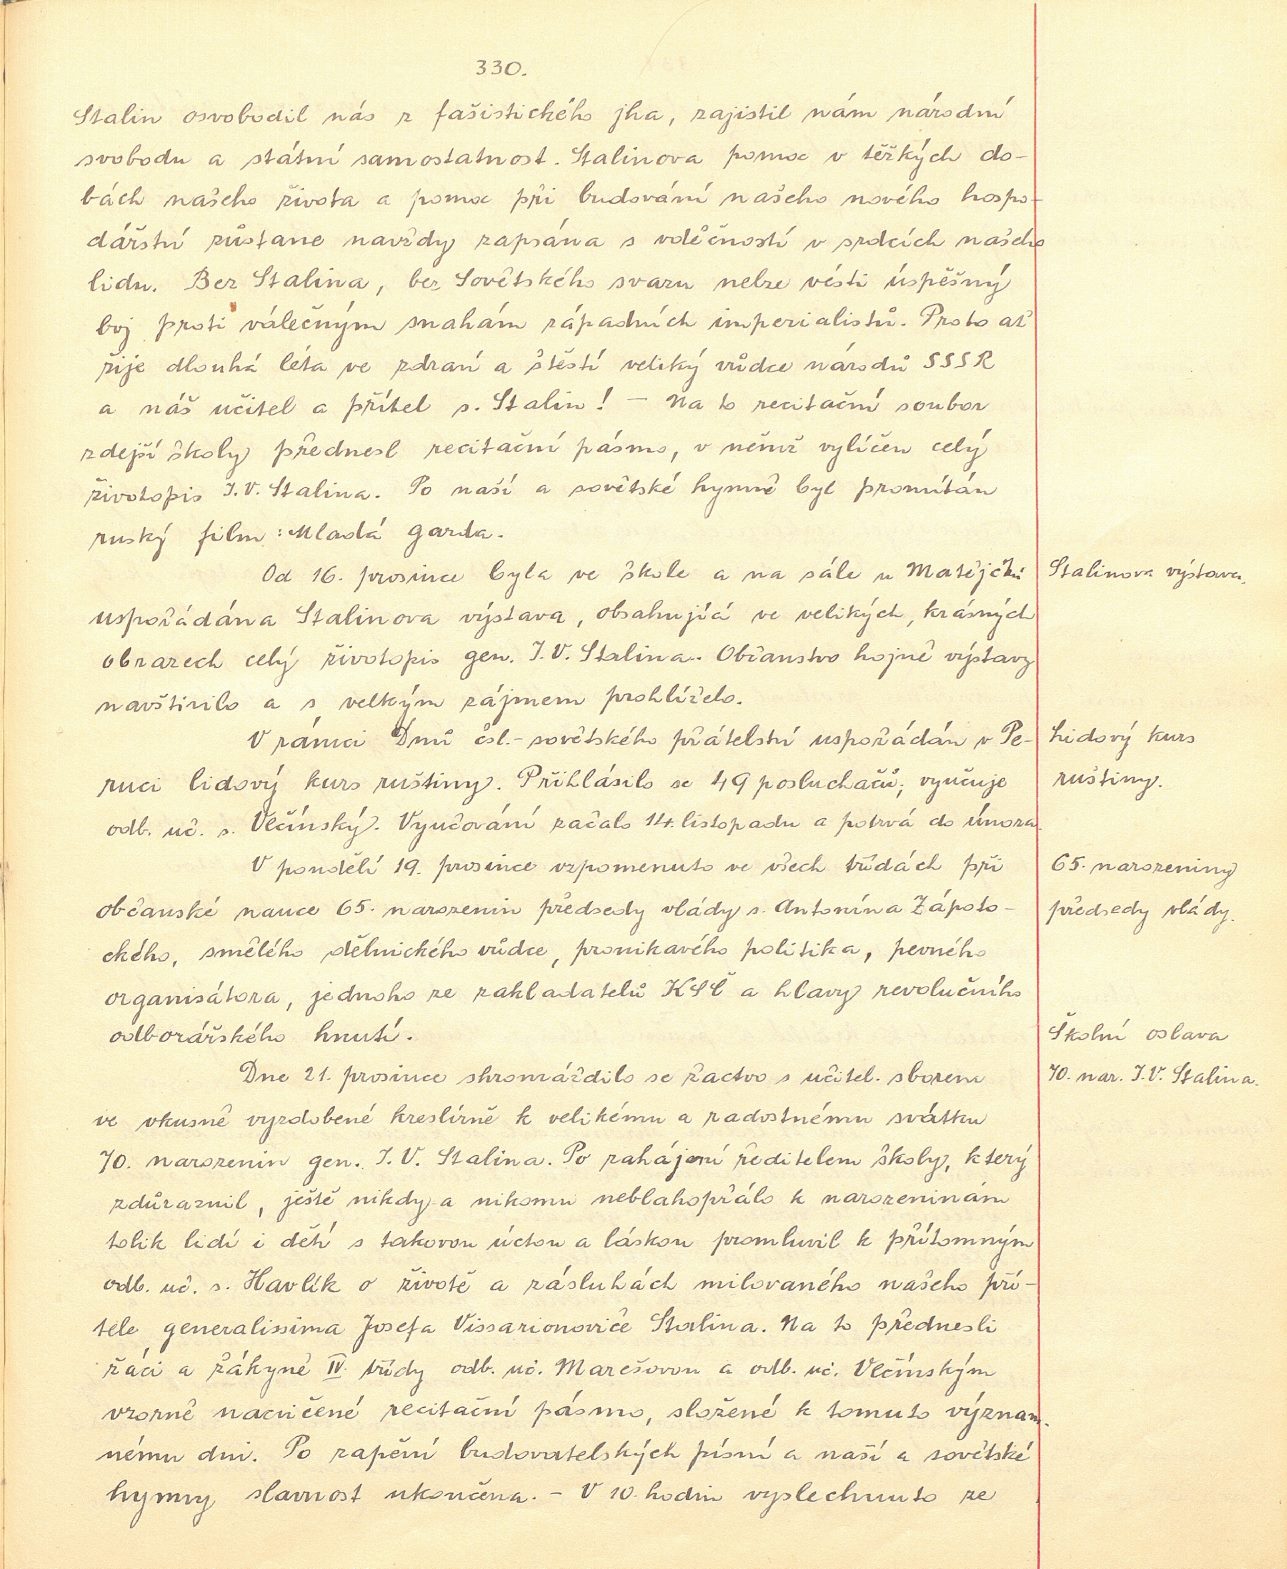 330.
Stalin osvobodil nás z fašistického jha, zajistil nám národní
svobodu a státní samostatnost. Stalinova pomoc v těžkých do-
bách našeho života a pomoc při budování našeho nového hospo-
dářství zůstane navždy zapsána s vděčností v srdcích našeho
lidu. Bez Stalina, bez Sovětského svazu nelze vésti úspěšný
boj proti válečným snahám západních imperialistů. Proto ať
žije dlouhá léta ve zdraní a štěstí veliký vůdce národů SSSR
a náš učitel a přítel s. Stalin! – Na to recitační soubor
zdejší školy přednesl recitační pásmo, v němž vylíčen celý
životopis J.V. Stalina. Po naší a sovětské hymně byl promítán
ruský film: Mladá garda.
Od 16. prosince byla ve škole a na sále u Matějčků
Stalinova výstava.
uspořádána Stalinova výstava, obsahující ve velikých, krásných
obrazech celý životopis gen. J.V. Stalina. Občanstvo hojně výstavy
navštívilo a s velkým zájmem prohlíželo.
V rámci Dnů čsl.-sovětského přátelství uspořádán v Pe-
Lidový kurs
ruci lidový kurs ruštiny. Přihlásilo se 49 posluchačů; vyučuje
ruštiny.
odb. uč. s. Vlčínský. Vyučování začalo 14. listopadu a potrvá do února.
V pondělí 19. prosince vzpomenuto ve všech třídách při
65. narozeniny
občanské nauce 65. narozenin předsedy vlády s. Antonína Zápoto-
předsedy vlády.
ckého, smělého dělnického vůdce, pronikavého politika, pevného
organisátora, jednoho ze zakladatelů KSČ a hlavy revolučního
odborářského hnutí.
Školní oslava
Dne 21. prosince shromáždilo se žactvo s učitel. sborem
70. nar. J.V. Stalina.
ve vkusně vyzdobené kreslírně k velikému a radostnému svátku
70. narozenin gen. J.V. Stalina. Po zahájení ředitelem školy, který
zdůraznil, ještě nikdy a nikomu neblahopřálo k narozeninám
tolik lidí i dětí s takovou úctou a láskou promluvil k přítomným
odb. uč. s. Havlík o životě a zásluhách milovaného našeho pří-
tele generalissima Josefa Vissarionoviče Stalina. Na to přednesli
žáci a žákyně IV. třídy odb. uč. Marešovou a odb. uč. Vlčínským
vzorně nacvičené recitační pásmo, složené k tomuto význam-
nému dni. Po zapění budovatelských písní a naší a sovětské
hymny slavnost ukončena. – V 10. hodin vyslechnuto ze